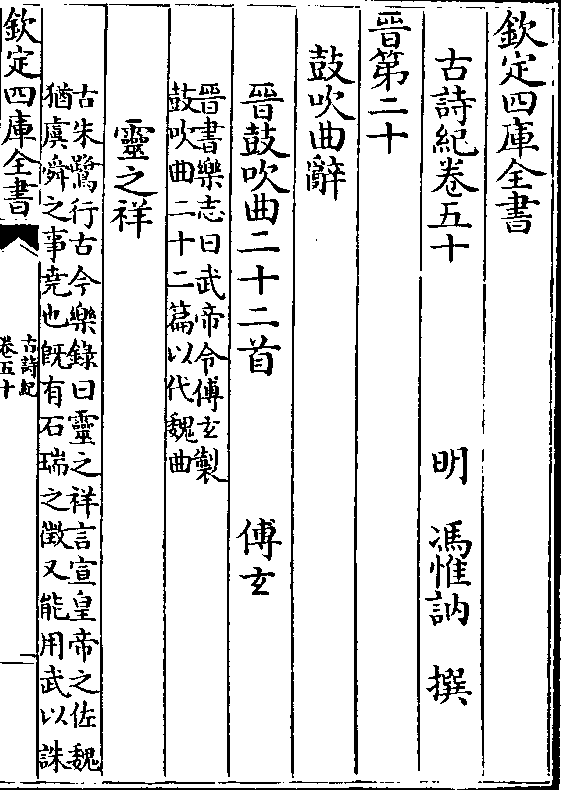 欽定四庫全書
古詩紀卷五十
明 馮惟訥 撰
晉第二十
鼓吹曲辭
晉鼓吹曲二十二首 傅玄
晉書樂志曰武帝令傅玄製
鼓吹曲二十二篇以代魏曲
靈之祥
古朱鷺行古今樂錄曰靈之祥言宣皇帝之佐魏
猶虞舜之事堯也旣有石瑞之徵又能用武以誅
欽定四庫全書
古詩紀
卷五十
一